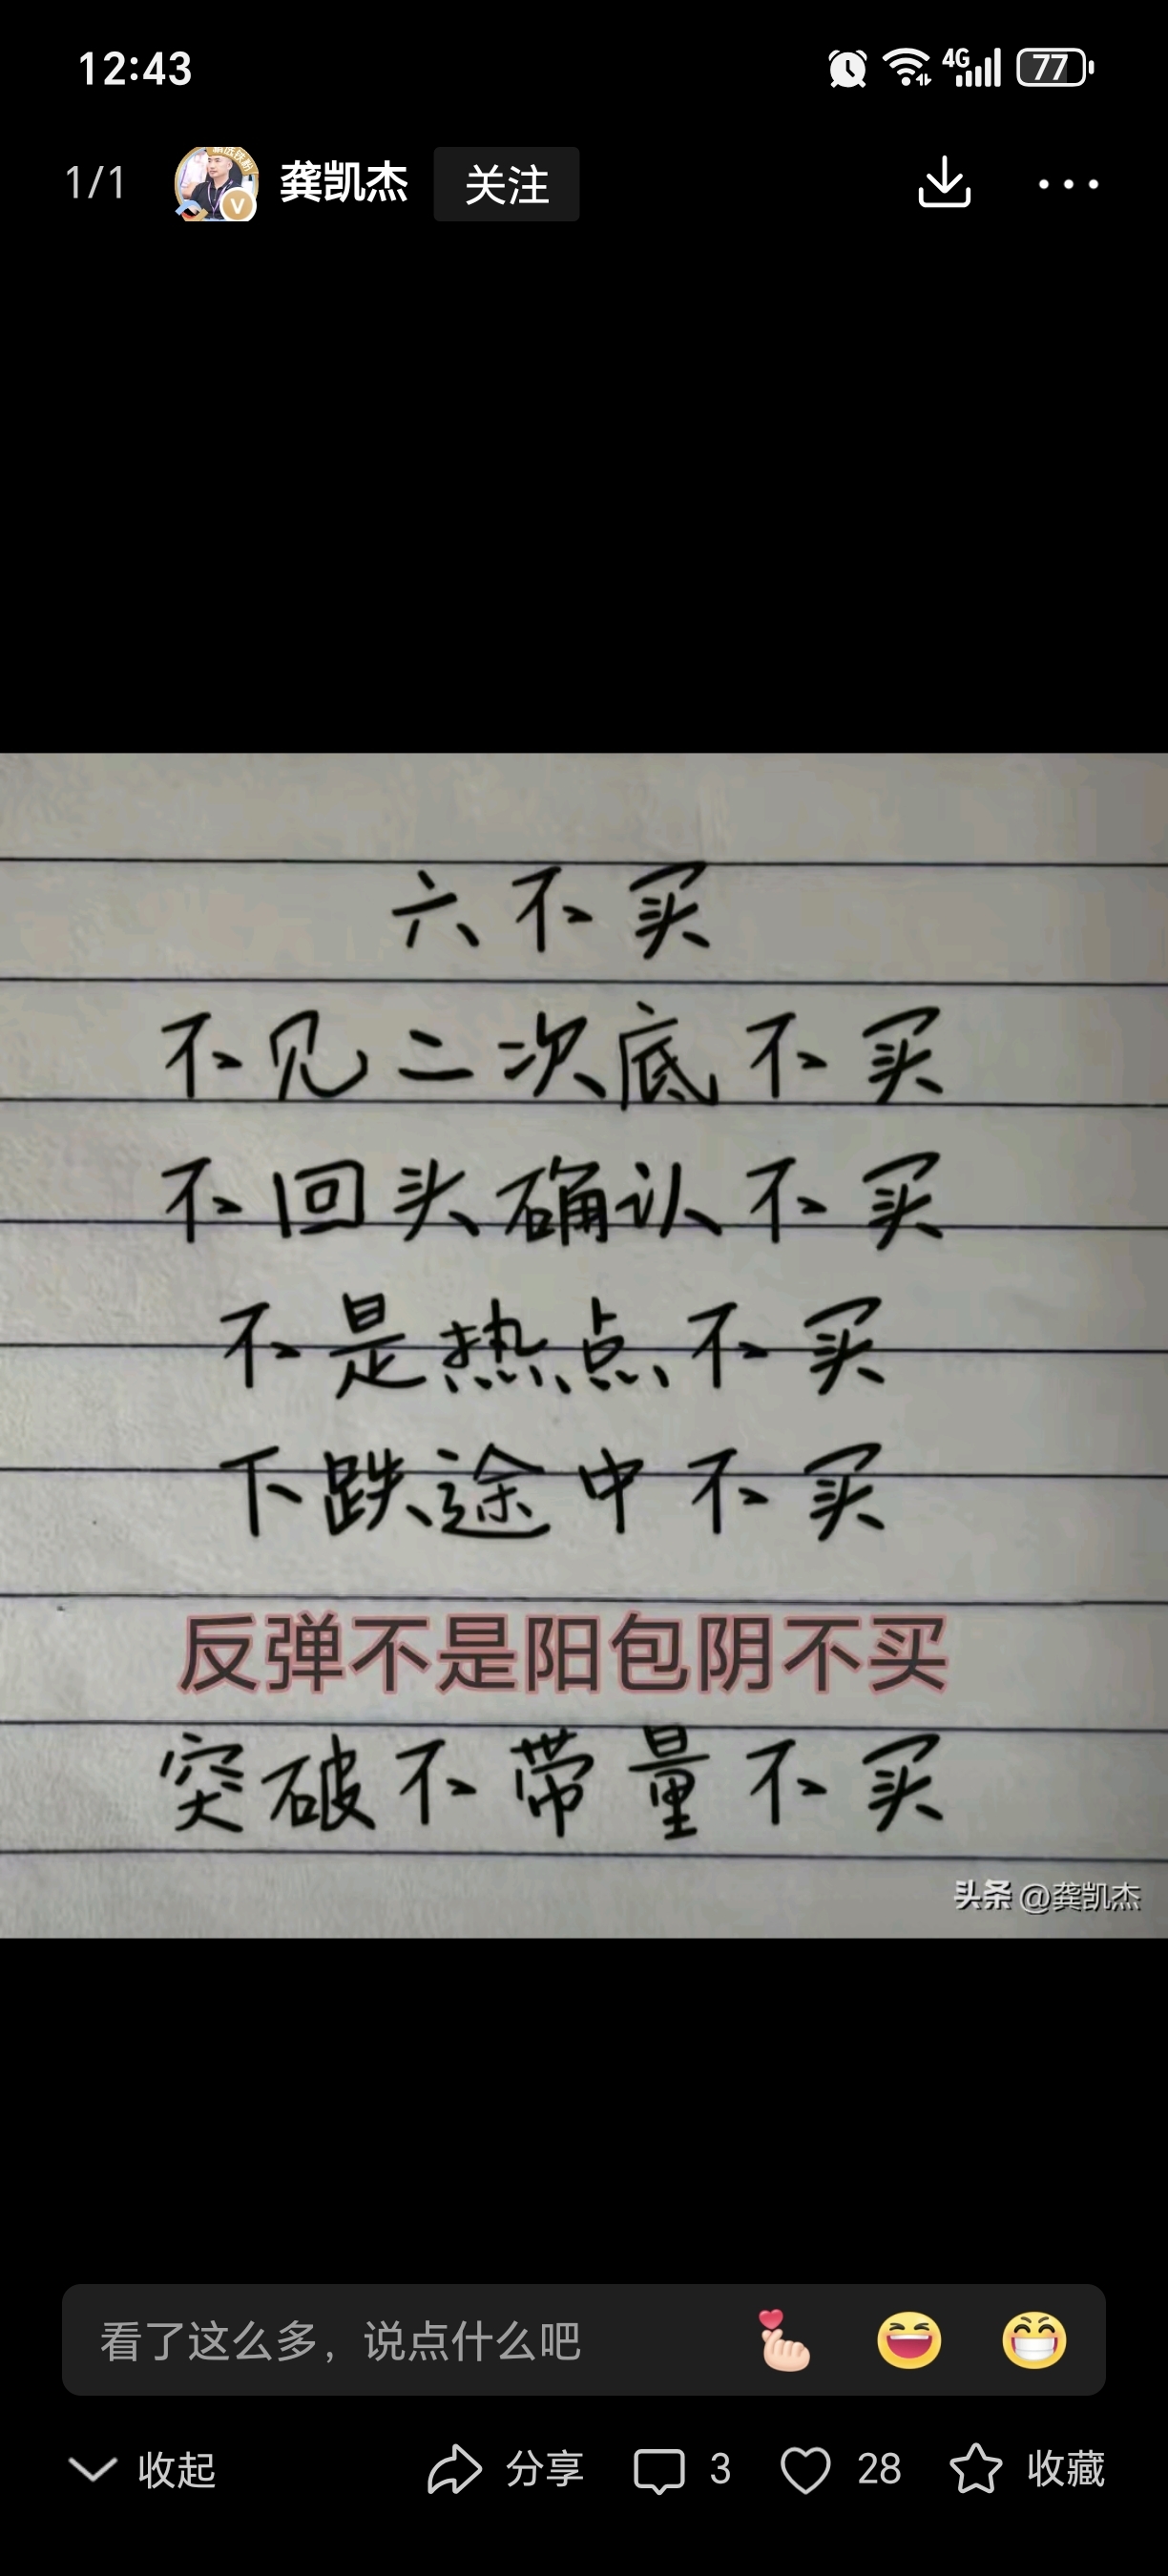 12:43
4G
77
1/1
龚凯杰
关注
六不买
不见二次底不买
不回头确认不买
不是热点不买
下跌途中不买
反弹不是阳包阴不买
突破不带量不买
头条 @龚凯杰
看了这么多，说点什么吧
收起
分享
3
28
收藏